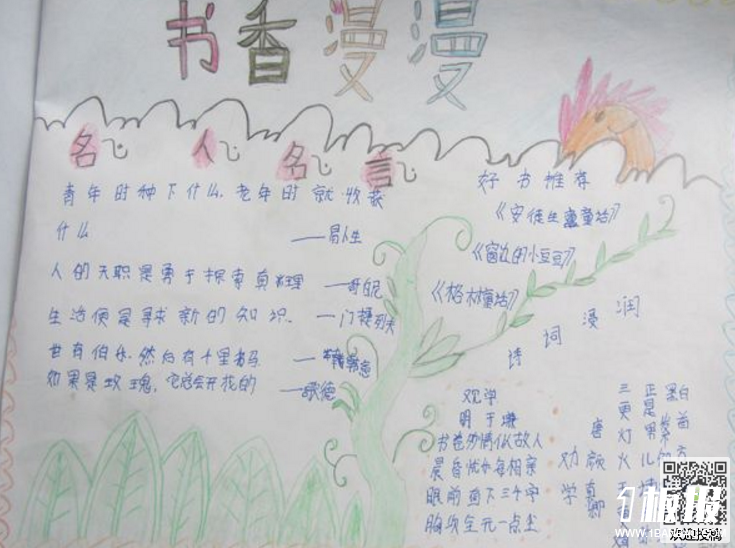 书香漫漫
名人名言
青年时种下什么,老年时就收获
什么
——易卜生
人的天职是勇于探索真理 ——哥白尼
生活便是寻求新的知识. ——门捷列夫
世有伯乐,然后有千里马 ——韩愈
如果是玫瑰,它总会开花的 ——歌德
好书推荐
《安徒生童话》
《窗边的小豆豆》
《格林童话》
诗词漫润
观学
明 于谦
书卷多情似故人
晨昏忧乐每相亲
眼前直下三千字
胸次全无一点尘
劝学
唐 颜真卿
三更灯火五
正是男儿
黑白
1板报